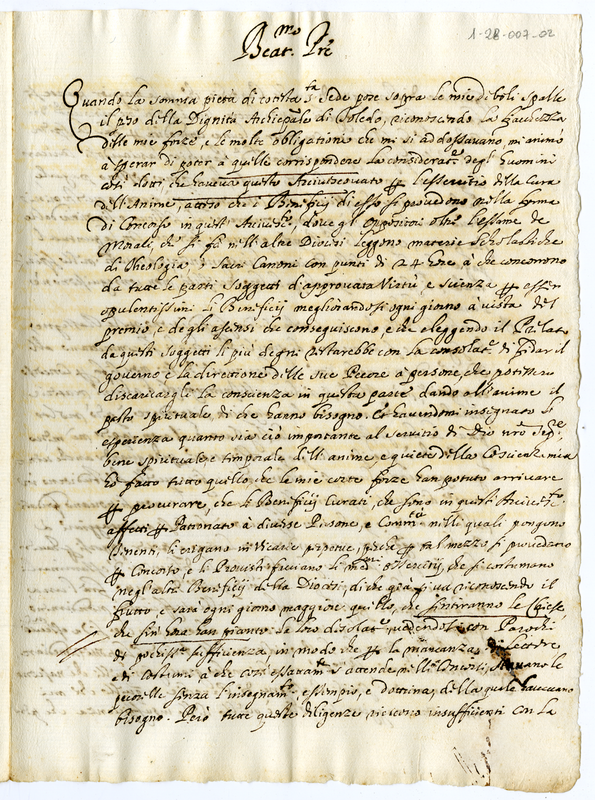 1-28-007-02
Beat.mo Pre
Quando la somma pietà di cotesta s.ta Sede pose sopra le mie deboli spalle
il peso della Dignità Archiepale di Toledo, riconoscendo la
delle mie forze, e le molte obligationi che mi si addossavano, mi animò
à sperar di poter à quelle corrispondere la considerat.e degl'huomini
così dotti che haveva questo Arcivescovato p l'essercitio della Cura
dell'Anime, atteso che i Beneficij di esso si provedono nella forma
di Concorso in questi Arcivesc.to, dove gl'Oppositori oltre l'essame de
Morali, che si fà nell'altre Diocesi leggono materie scholastiche
di Theologia, e Sacri Canoni con punti di 24 hore à che concorrono
da tutte le parti soggetti d'approvata Virtù e scienza p esser
opulentissimi li Beneficij megliorandosi ogni giorno à vista del
premio, e degli ascensi che conseguiscono, e che eleggendo il Prelato
da questi soggetti li più degni restarebbe con la consolat.e di fidar il
governo e la directione delle sue Pecore à persone, che potessero
discaricargli la conscienza in questa parte dando all'anime il
pasto spirituale di che hanno bisogno. Et havendomi insegnato l'
esperienza quanto sia ciò importante al servitio di Dio nro Sig.e
bene spirituale e temporale dell'anime e quiete della Coscienz. mia
hò fatto tutto quello, che le mie corte forze han potuto arrivare
p procurare, che li Beneficij Curati, che sono in questi Arcivesc.to
affetti p Patronato à diverse Persone, e Comm.tà nelli quali pongono
Tenenti, si erigano in Vicarie perpetue, perche p tal mezzo si provedano
p Concorso, e li Provisti faciano li med.mi essercitij, che si costumano
negl'altri Beneficij della Diocesi, di che già si và riconoscendo il
frutto, e sarà ogni giorno maggiore quello, che sentiranno le Chiese
che sin'hora han pianto la loro desolat.e, vedendosi con Parochi
di pochiss.a sufficienza, in modo che p la mancanza di Lettere
e di Costumi à che così essattam.te s'attende nelli Concorsi, stavano le
pecorelle senza l'insegnam.to, essempio, e dottrina, della quale havevano
bisogno. Però tutte queste diligenze riescono insufficienti con la